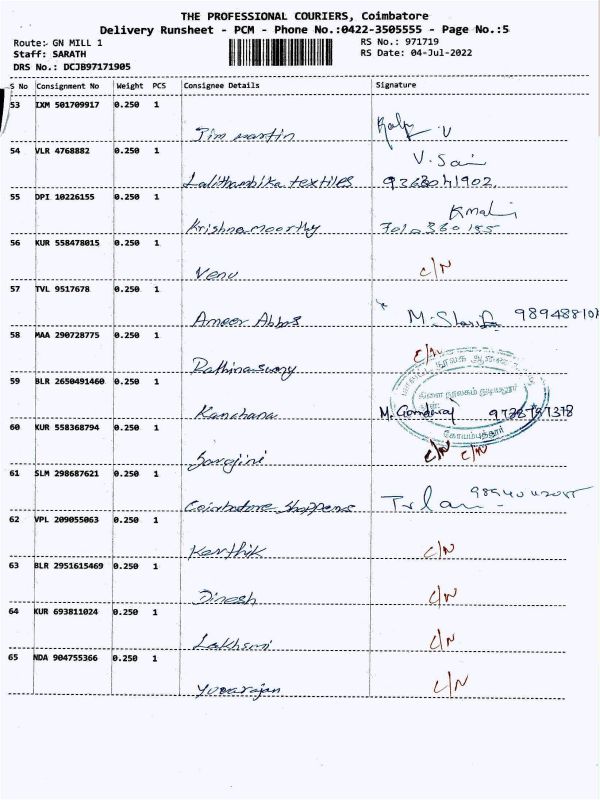 THE PROFESSIONAL COURIERS, Coimbatore
Delivery Runsheet - PCM - Phone No.:0422-3505555 - Page No.:5
Route:- GN MILL 1 RS No.: 971719
Staff: SARATH RS Date: 04-Jul-2022
DRS No.: DCJB97171905
S No Consignment No Weight PCS Consignee Details Signature
53 IXM 501709917 0.250 1
Jim martin
54 VLR 4768882 0.250 1 V. Sai
Lalithambika textiles
55 DPI 10226155 0.250 1
Krishnamoorthy
56 KUR 558478015 0.250 1
Venu C/N
57 TVL 9517678 0.250 1
Ameer Abbas 98948810
58 MAA 290728775 0.250 1
Rathinasamy C/N
59 BLR 2650491460 0.250 1
Kanchana
60 KUR 558368794 0.250 1 கோயம்புத்தூர்
Sarojini C/N C/N
61 SLM 298687621 0.250 1
Coimbatore Shoppers
62 VPL 209055063 0.250 1
Karthik C/N
63 BLR 2951615469 0.250 1
Dinesh C/N
64 KUR 693811024 0.250 1
Lakhsmi C/N
65 NDA 904755366 0.250 1
Yuvarajan C/N